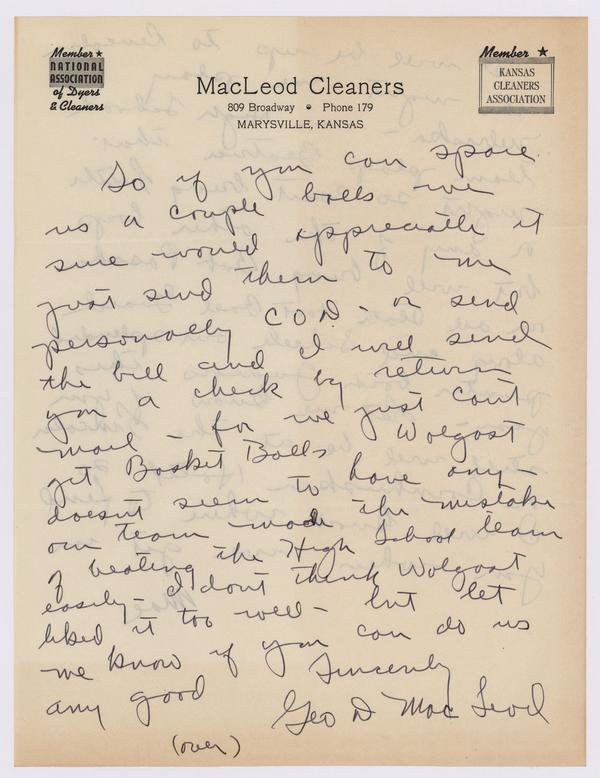 Member ★
NATIONAL
ASSOCIATION
of Dyers
& Cleaners
MacLeod Cleaners
809 Broadway • Phone 179
MARYSVILLE, KANSAS
Member ★
KANSAS
CLEANERS
ASSOCIATION
So if you can spare
us a couple balls we
sure would appreciate it
just send them to me
personally C.O.D. - or send
the bill and I will send
you a check by return
mail - for we just can't
get Basket Balls Wolgast
doesn't seem to have any -
our team made the mistake
of beating the High School team
easily - I don't think Wolgast
liked it too well - but let
me know if you can do us
any good Sincerely
Geo D MacLeod
(over)